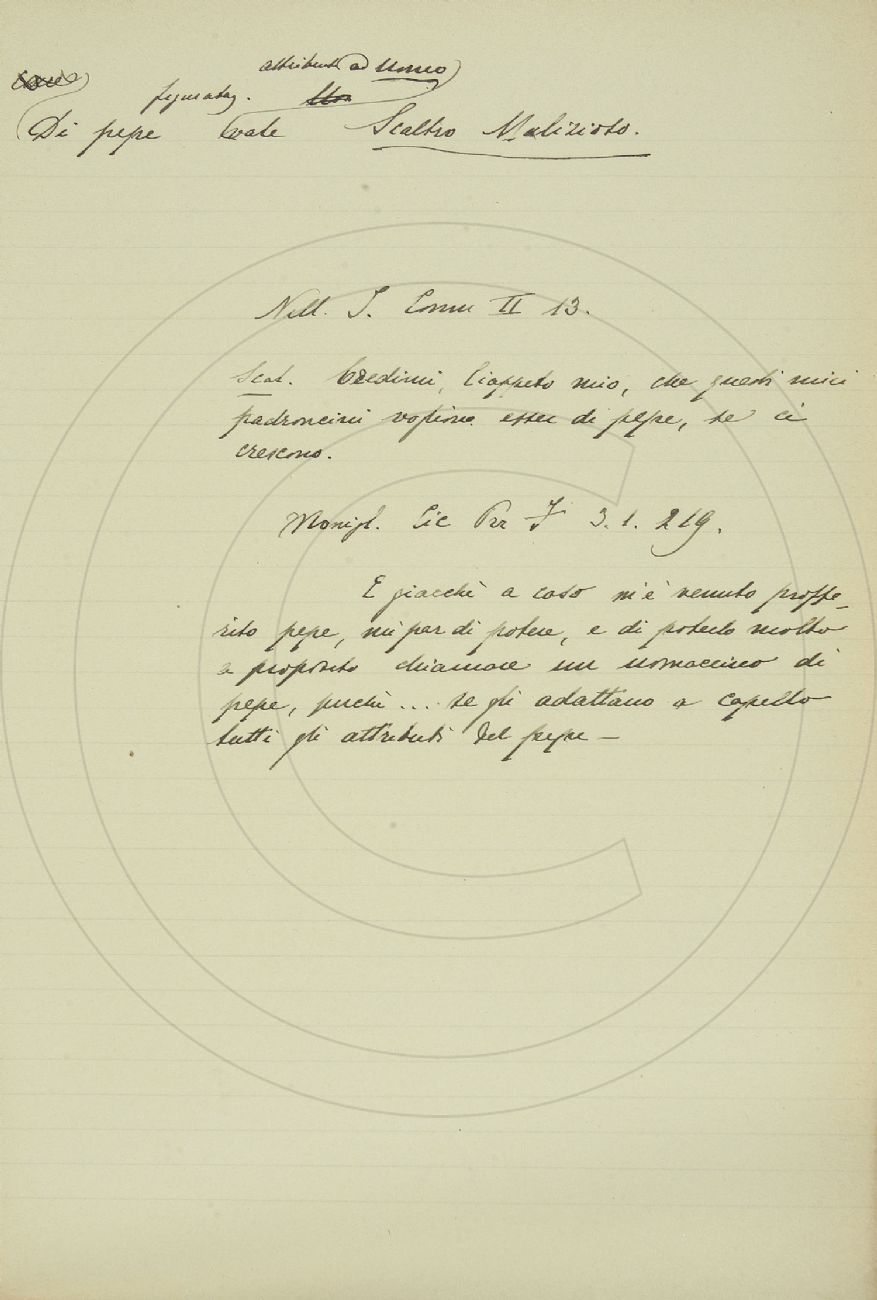 attribuito ad Uomo
figuratam.
Di pepe vale Scaltro Malizioso.
Nell. J. Comm II 13.
Scat. Credimi, Ciappeto mio, che questi miei
padroncini voglion esser di pepe, se ci
crescono.
Monigl. 3. 1. 219.
E giacchè a caso m'è venuto proffe-
rito pepe, mi par di potere, e di poterlo molto
a proposito chiamare un uomaccino di
pepe, perchè ... se gli adattano a capello
tutti gli attributi del pepe —